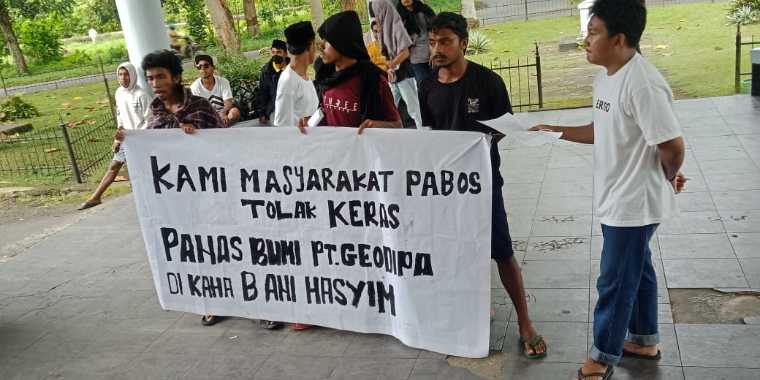 KAMI MASYARAKAT PABOS
TOLAK KERAS
PANAS BUMI PT.GEODIPA
DI KAHA B ANI HASYIM